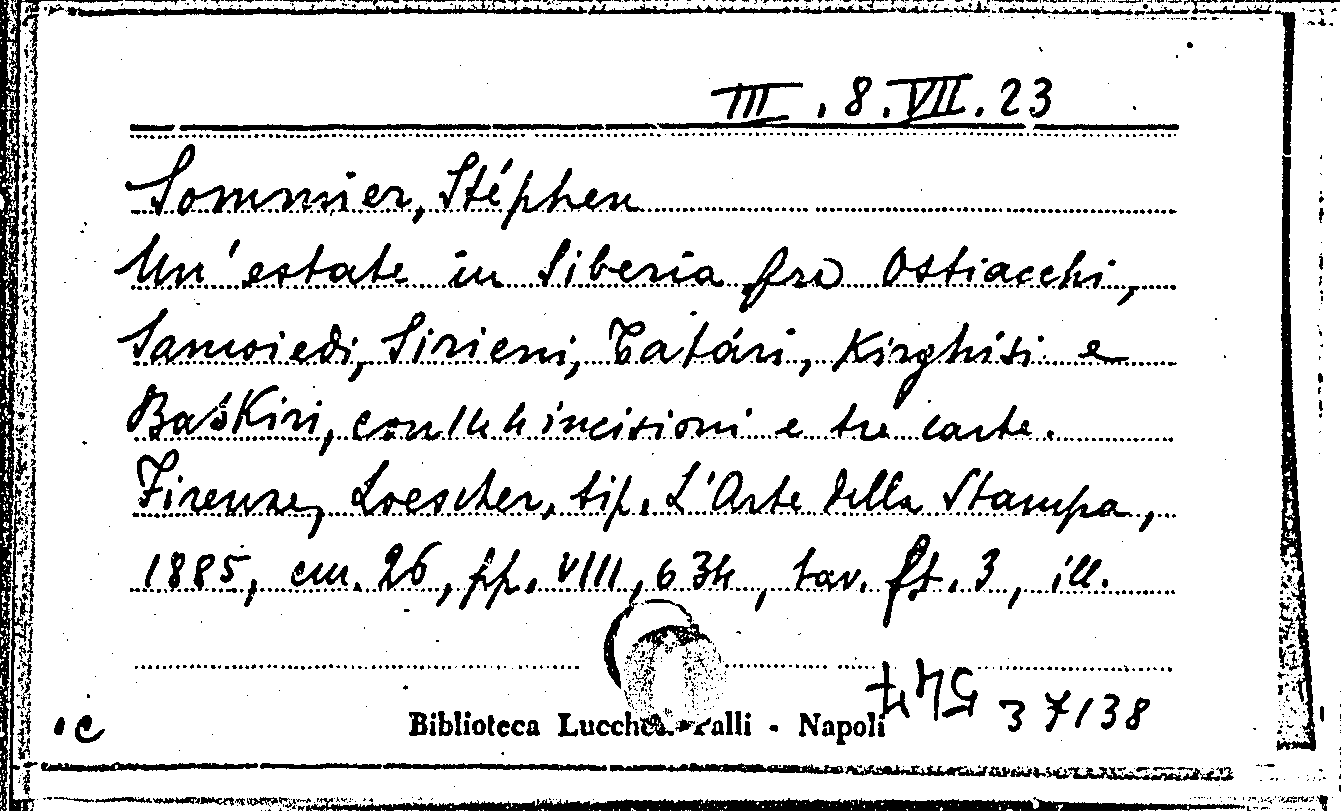 III . 8. VII. 23
Sommier, Stéphen
Un'estate in Siberia fra Ostiacchi,
Samoiedi, Sirieni, Tatári, Kirghisi e
Baskiri, con 144 incisioni e tre carte.
Firenze, Loescher, tip. L'Arte della Stampa,
1885, cm. 26, pp. VIII, 634, tav. ft. 3, ill.
37138
Biblioteca Lucchesi-Palli - Napoli
.c